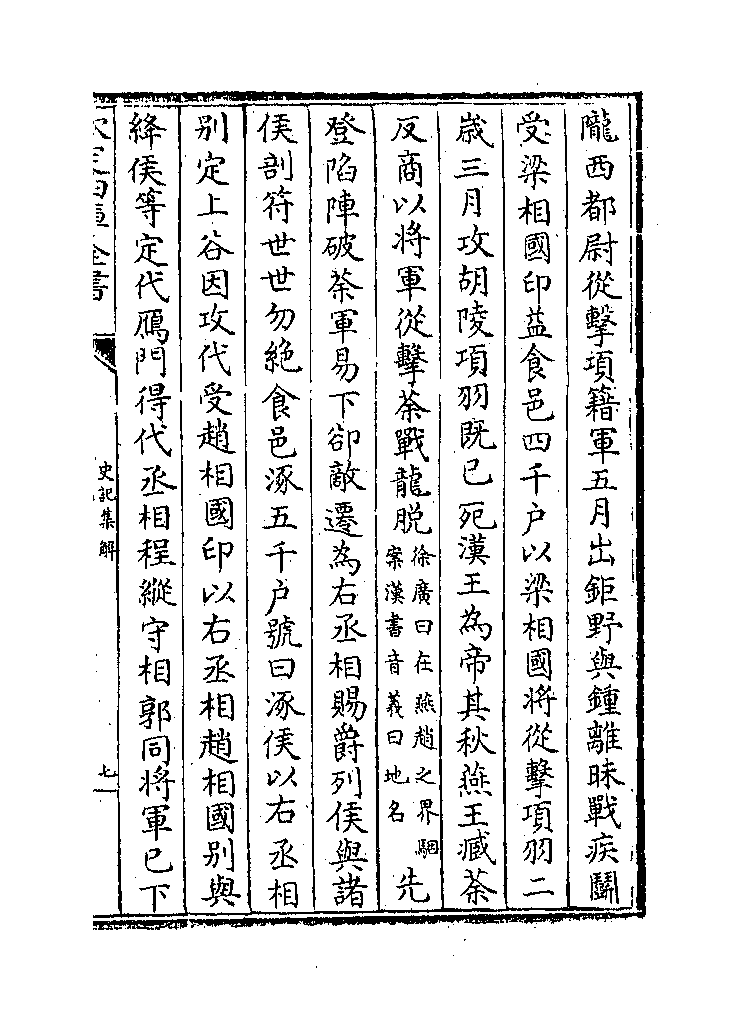 隴西都尉從擊項籍軍五月出鉅野與鍾離昧戰疾鬭
受梁相國印益食邑四千户以梁相國將從擊項羽二
歲三月攻胡陵項羽既已死漢王為帝其秋燕王臧荼
反商以將軍從擊荼戰龍脱
徐廣曰在燕趙之界駰
案漢書音義曰地名
先
登陷陣破荼軍易下卻敵遷為右丞相賜爵列侯與諸
侯剖符世世勿絶食邑涿五千户號曰涿侯以右丞相
别定上谷因攻代受趙相國印以右丞相趙相國别與
絳侯等定代鴈門得代丞相程縱守相郭同將軍已下
欽定四庫全書
史記集解
七